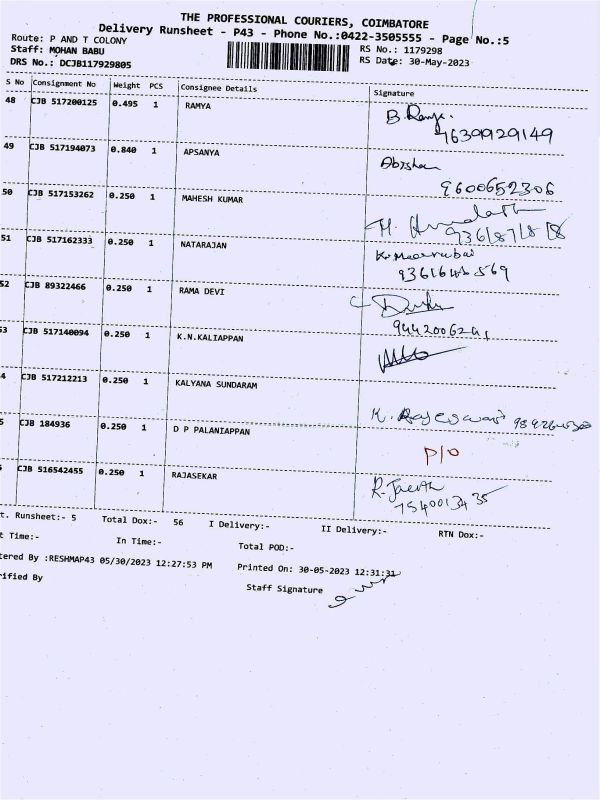 THE PROFESSIONAL COURIERS, COIMBATORE
Delivery Runsheet - P43 - Phone No.:0422-3505555 - Page No.:5
Route: P AND T COLONY
RS No.: 1179298
Staff: MOHAN BABU
RS Date: 30-May-2023
DRS No.: DCJB117929805
S No Consignment No Weight PCS Consignee Details Signature
48 CJB 517200125 0.495 1 RAMYA B. Ramya
9639929149
49 CJB 517194073 0.840 1 APSANYA Abishan
9600652306
50 CJB 517153262 0.250 1 MAHESH KUMAR
9361871818
51 CJB 517162333 0.250 1 NATARAJAN K. Meenabai
52 CJB 89322466 0.250 1 RAMA DEVI
9442006241
53 CJB 517140094 0.250 1 K.N.KALIAPPAN
4 CJB 517212213 0.250 1 KALYANA SUNDARAM K. Rajeswari
5 CJB 184936 0.250 1 D P PALANIAPPAN P/O
CJB 516542455 0.250 1 RAJASEKAR R. Jaenth
7540013435
t. Runsheet:- 5 Total Dox:- 56 I Delivery:- II Delivery:- RTN Dox:-
t Time:- In Time:- Total POD:-
tered By :RESHMAP43 05/30/2023 12:27:53 PM Printed On: 30-05-2023 12:31:31
rified By Staff Signature